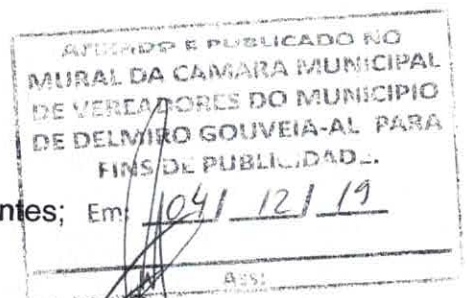 AFIXADO E PUBLICADO NO
MURAL DA CAMARA MUNICIPAL
DE VEREADORES DO MUNICIPIO
DE DELMIRO GOUVEIA-AL PARA
FINS DE PUBLICIDADE.
ntes; Em 04/ 12/ 19
Ass: